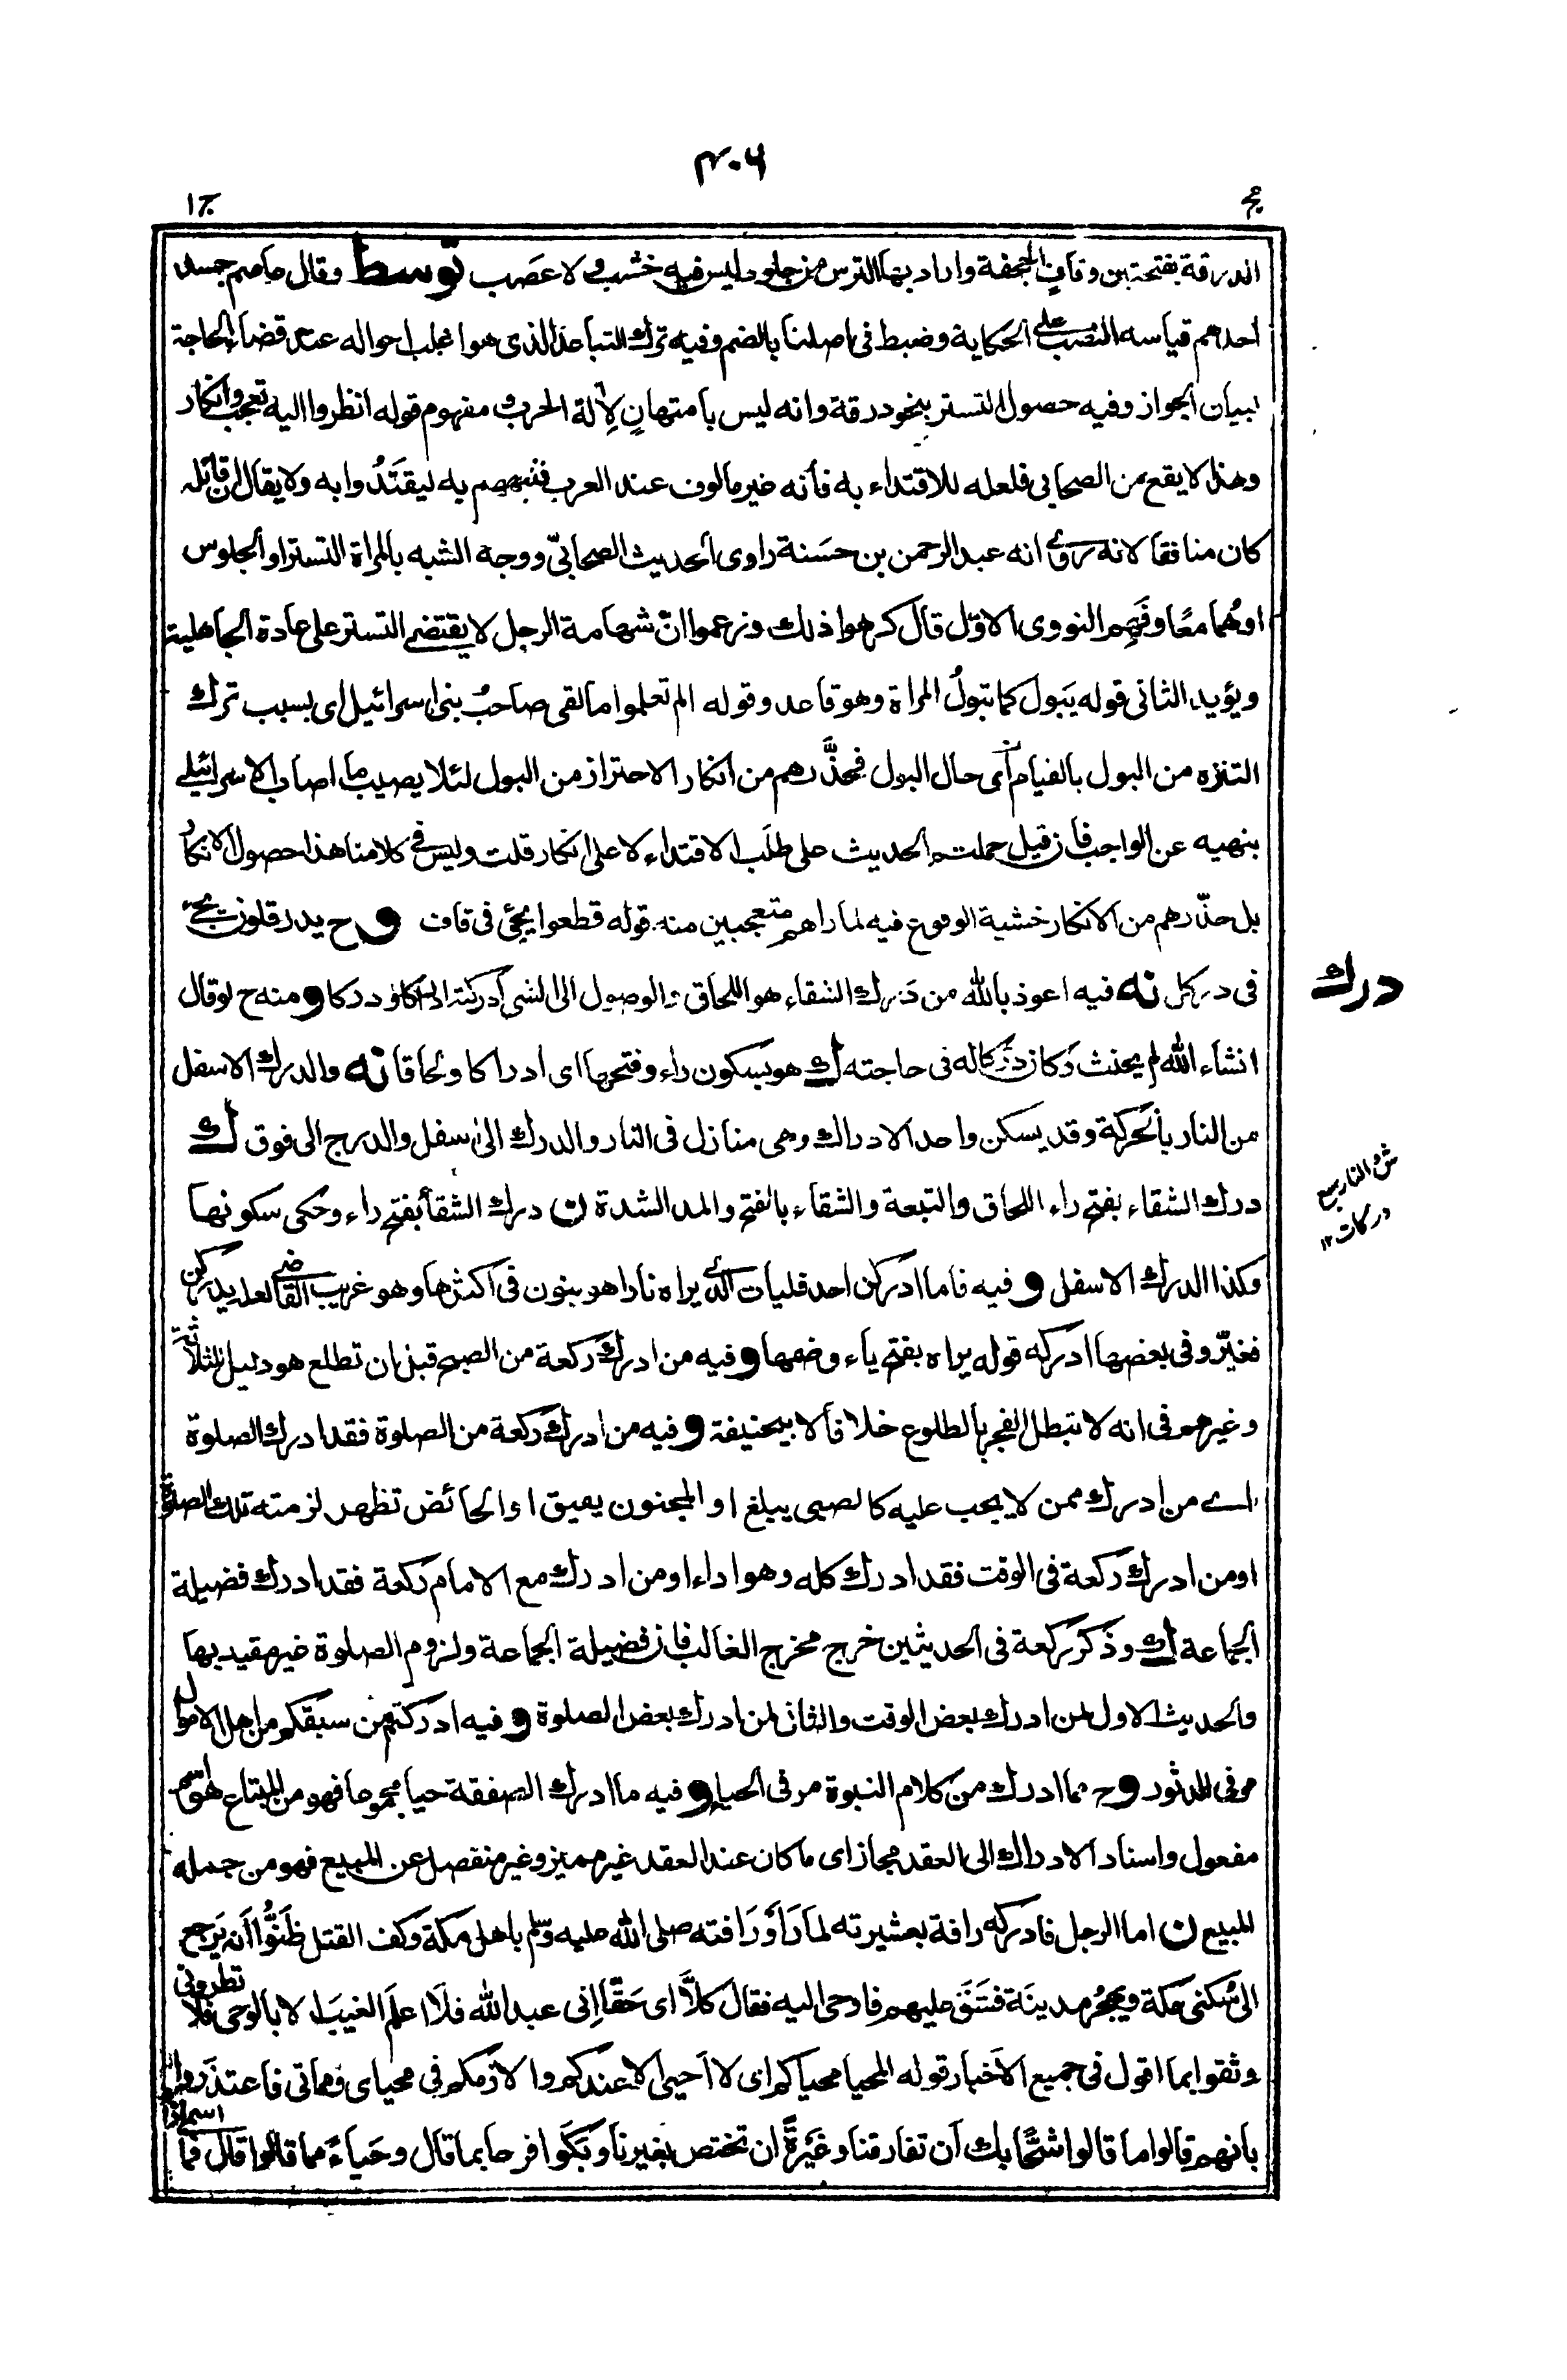 ۴۰۶
مج
ج۱
الدرقة بفتحتين وقاف الجحفة واراد بها الترس من جلود ليس فيه خشب ولا عصب توسط وقال عاصم جسد
احدهم قياسه النصب على الحكاية وضبط فى اصلنا بالضم وفيه ترك التباعد الذى هو اغلب احواله عند قضاء الحاجة
لبيان الجواز وفيه حصول التستر بنحو درقة وانه ليس بامتهان لآلة الحرب و مفهوم قوله انظروا اليه تعجب وانكار
وهذا لا يقع من الصحابى فلعله للاقتداء به فانه غير مالوف عند العرب فنبههم به ليقتدوا به ولا يقال ان قائله
كان منافقا لانه روى انه عبد الرحمن بن حسنة راوى الحديث الصحابىّ ووجه الشبه بالمراة التستر او الجلوس
اوهما معًا وفَهِم النووى الاوّل قال كرهوا ذلك وزعموا انّ شهامة الرجل لا يقتضى التستر على عادة الجاهلية
ويؤيد الثانى قوله يَبول كما تبولُ المراة وهو قاعد وقوله الم تعلموا ما لقى صاحبُ بنى اسرائيل اى بسبب ترك
التنزه من البول بالقيام اى حال البول فحذَّرهم من انكار الاحتراز من البول لئلا يصيب ما اصاب الاسرائيلى
بنهيه عن الواجب فان قيل حملت الحديث على طلَب الاقتداء لا على انكار قلت وليس فى كلامنا هذا حصول الانكار
بل حذّرهم من الانكار خشية الوقوع فيه لما راهم متعجبين منه قوله قطعوا يجئ فى قاف و ح يدرقلون يجئ
فى دركل نه فيه اعوذ بالله من دَرك الشقاء هو اللحاق والوصول الى الشئ ادركته ادراكا ودركا و منه ح لو قال
انشاء الله لم يحنث وكان دركا له فى حاجته ك هو بسكون راء وفتحها اى ادراكا ولحاقا نه والدرك الاسفل
من النار بالحركة وقد يسكن واحد الادراك وهى منازل فى النار والدرك الى اسفل والدرج الى فوق ك
درك الشقاء بفتح راء اللحاق والتبعة والشقاء بالفتح والمد الشدة ن درك الشقا بفتح راء وحكى سكونها
وكذا الدرك الاسفل و فيه فاما ادركن احد فليات الذى يراه نارا هو بنون فى اكثرها وهو غريب القاضى لعله يدركن
فغيّر وفى بعضها ادركه قوله يراه بفتح ياء وضمها و فيه من ادرك ركعة من الصبح قبل ان تطلع هو دليل للثلاثة
وغيرهم فى انه لا تبطل الفجر بالطلوع خلافا لابيحنيفة و فيه من ادرك ركعة من الصلوة فقد ادرك الصلوة
اى من ادرك ممن لا يجب عليه كالصبى يبلغ او المجنون يفيق او الحائض تظهر لزمته تلك الصلوة
او من ادرك ركعة فى الوقت فقد ادرك كله وهو اداء او من ادرك مع الامام ركعة فقد ادرك فضيلة
الجماعة ك وذكر ركعة فى الحديثين خرج مخرج الغالب فان فضيلة الجماعة ولزوم الصلوة غير مقيد بها
والحديث الاول لمن ادرك بعض الوقت والثانى لمن ادرك بعض الصلوة و فيه ادركتم من سبقكم من اهل الاموال
مر فى الدثور و ح مما ادرك من كلام النبوة مر فى الحياء و فيه ما ادرك الصفقة حيا مجموعا فهو من المبتاع هو اسم
مفعول واسناد الادراك الى العقد مجاز اى ما كان عند العقد غير مميز وغير منفصل عن المبيع فهو من جمله
المبيع ن اما الرجل فادركه رافة بعشيرته لما رَأَوْ رَافته صلى الله عليه وسلم باهل مكة وكف القتل ظَنُّوا انه يرجع
الى سُكنى مكة ويهجُر مدينَة فشق عليهم فاوحى اليه فقال كلاَّ اى حَقّا اِنى عبد الله فلا اعلَم الغيبَ الا بالوحى فلا تطرونى
وثقوا بما اقول فى جميع الاخبار قوله المحيا محياكم اى لا احيى الا عندكم والازمكم فى محياى ومماتى فاعتذروا اليه
بانهم قالوا ما قالوا شحًّا بك اَن تفارقنا وغَيْرةً ان تختص بغيرنا وبَكَوا فرحا بما قال وحَياءً مما قالوا قال فما اسمى اذا
درك
ش والنار سبع
دركات ۱۲